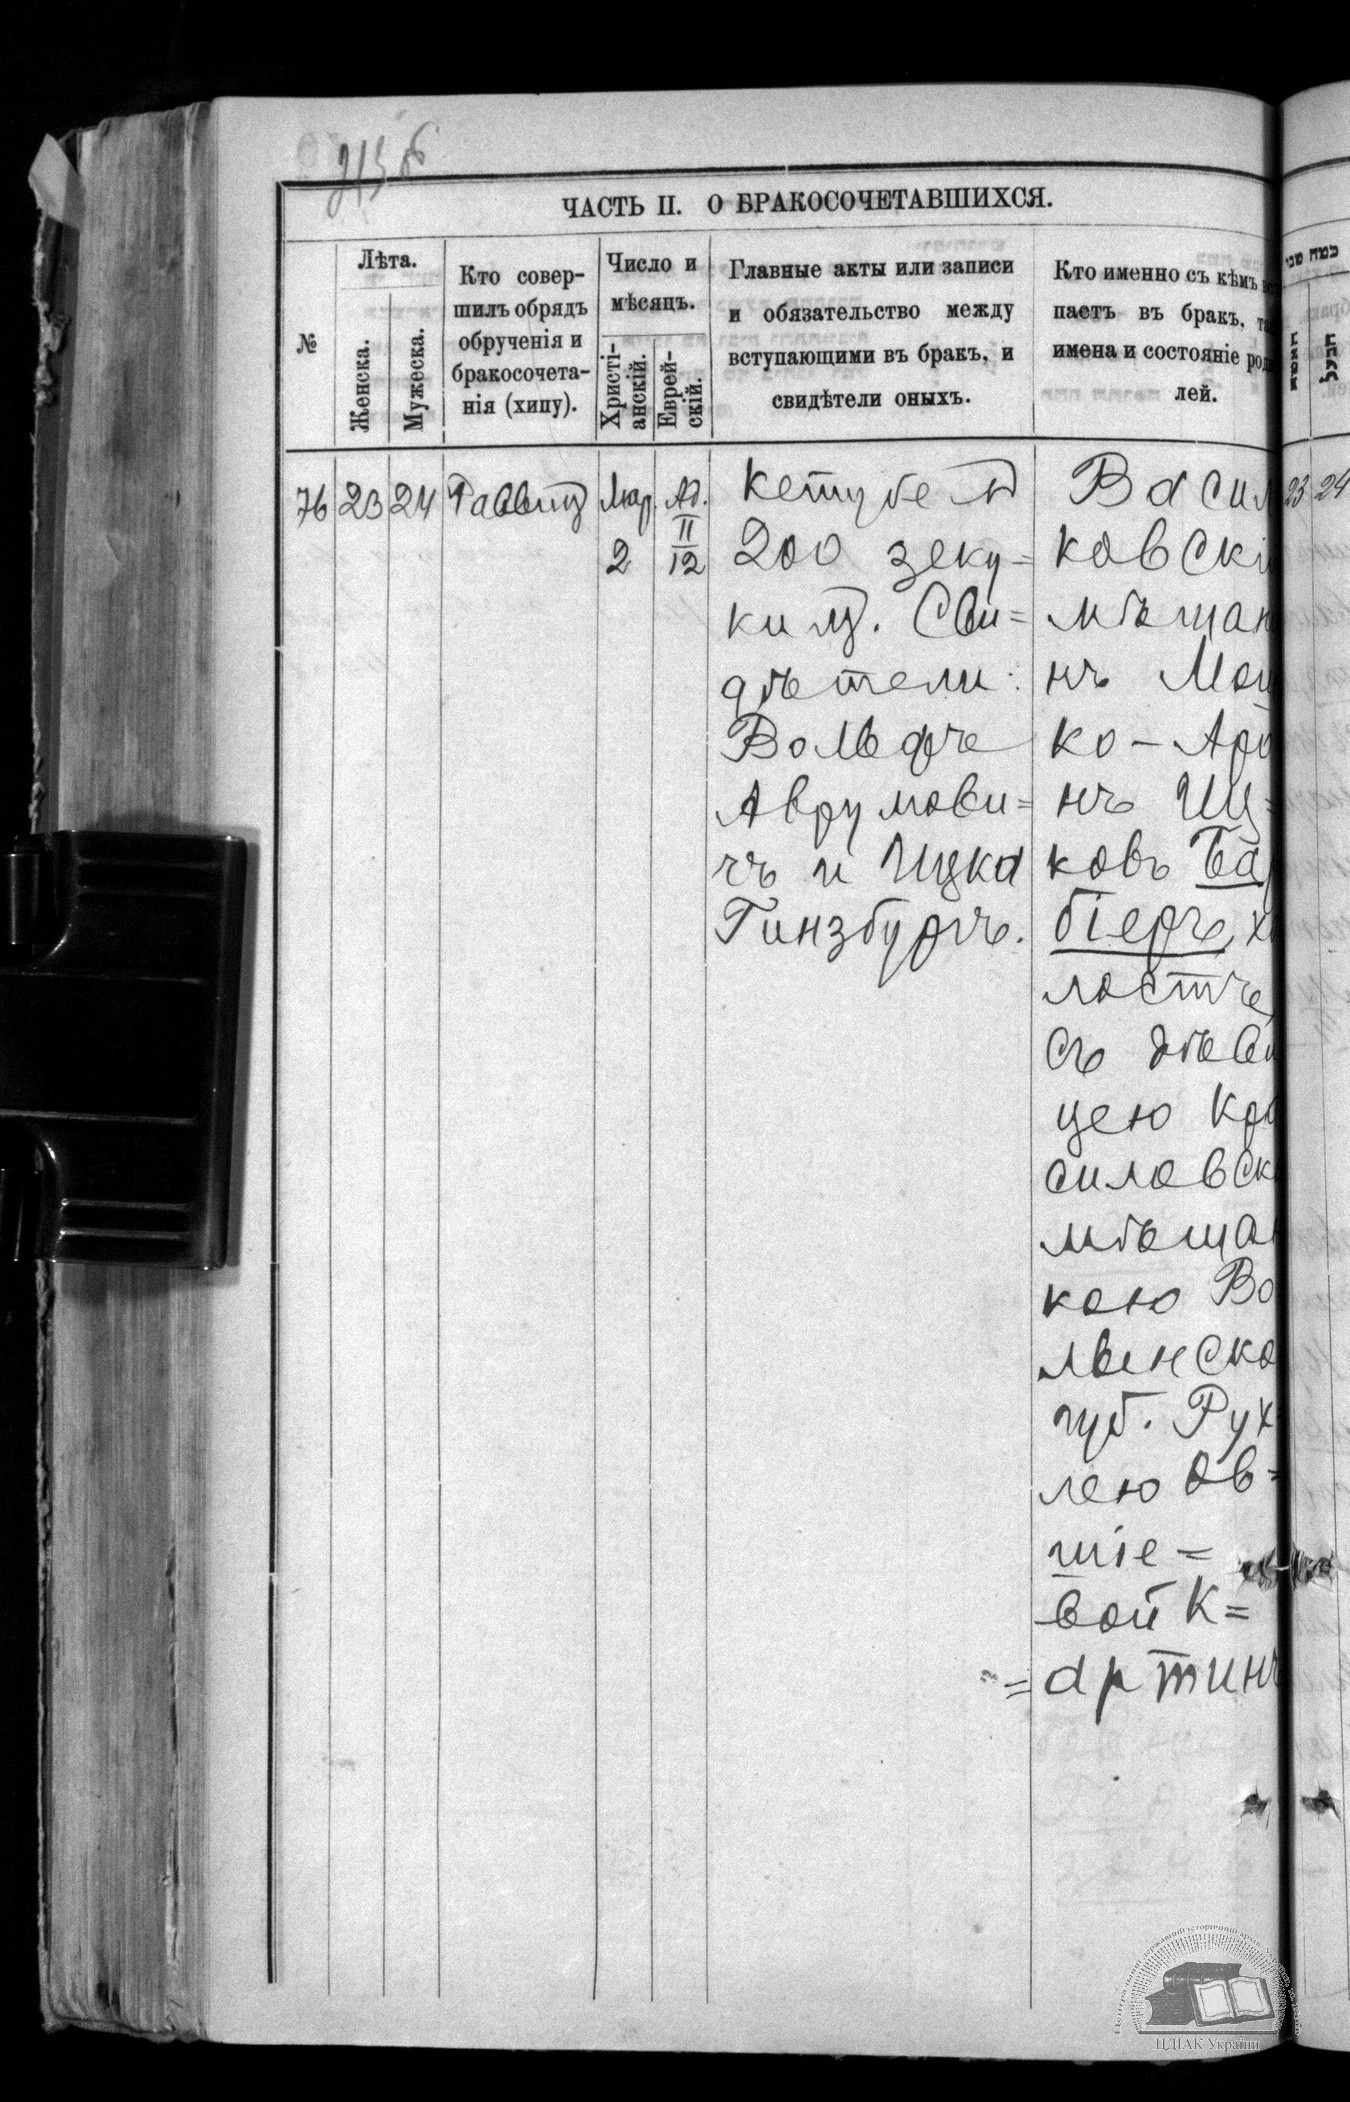 ЧАСТЬ II. О БРАКОСОЧЕТАВШИХСЯ.
№
Лѣта.
Женска.
Мужеска.
Кто совер-
шилъ обрядъ
обрученія и
бракосочета-
нія (хипу).
Число и
мѣсяцъ.
Христі-
анскій.
Еврей-
скій.
Главные акты или записи
и обязательство между
вступающими въ бракъ, и
свидѣтели оныхъ.
Кто именно съ кѣмъ вс
паетъ въ бракъ, та
имена и состояніе роди
лей.
כמה שני
76
23
24
Раввинъ
Мар.
2
Ад.
II
12
Кетубе въ
200 зеку-
кимъ. Сви=
дѣтели:
Вольфъ
Аврумови=
чъ и Ицка
Гинзбургъ.
Васил
ковскі
мѣщан
нъ Мош
ко-Аро
нъ Иц=
ковъ Бар
біеръ, хо
лостъ,
съ дѣви
цею Кра
силовск
мѣщан
кою Во
лынско
губ. Рух
лею Ов=
шіе=
вой К=
=артинъ
23 24
ЦДІАК України